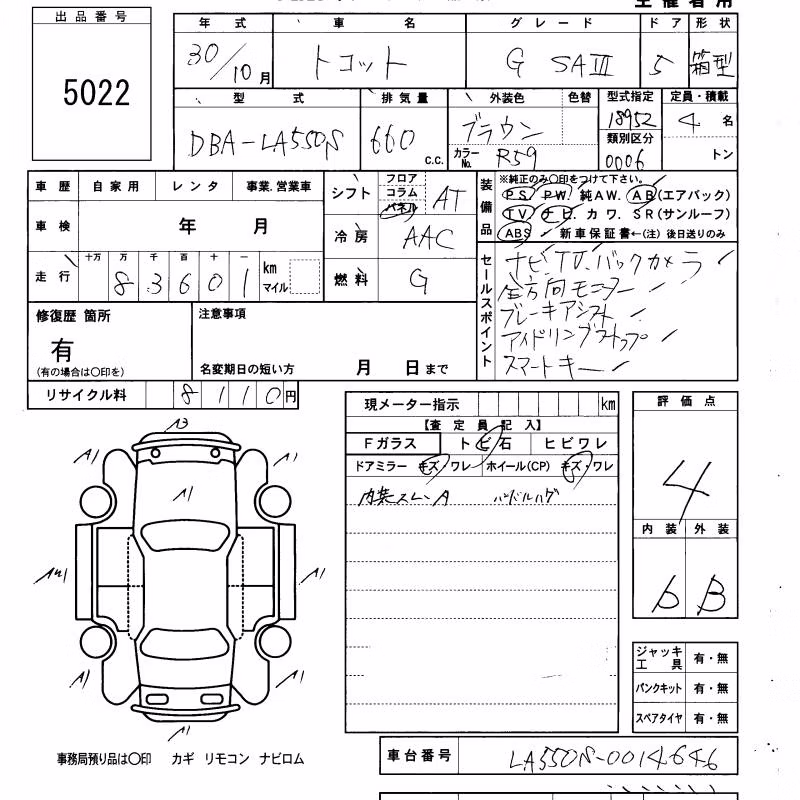 主催者用
出品番号
5022
年式 車名 グレード ドア 形状
30/10月 トコット G SAⅢ 5 箱型
型式 排気量 外装色 色替 型式指定 定員・積載
DBA-LA550S 660 c.c. ブラウン 18952 4 名
カラーNo. R59 類別区分 0006 トン
車歴 自家用 レンタ 事業.営業車
車検 年 月
走行 十万 万 千 百 十 一
8 3 6 0 1 km マイル
シフト フロア コラム パネル AT
冷房 AAC
燃料 G
装備品
※純正のみ○印をつけて下さい。
PS. PW. 純AW. AB(エアバック)
TV. ナビ. カワ. SR(サンルーフ)
ABS 新車保証書←(注) 後日送りのみ
セールスポイント
ナビ、TV、バックカメラ
全方向モニター
ブレーキアシスト
アイドリングストップ
スマートキー
修復歴 箇所
有
(有の場合は○印を)
注意事項
名変期日の短い方 月 日まで
リサイクル料 8 1 1 0 円
現メーター指示 km
【査定員記入】
Fガラス トビ石 ヒビワレ
ドアミラー キズ・ワレ ホイール(CP) キズ・ワレ
内装スレ、A ハンドルハゲ
評価点
4
内装 外装
b B
ジャッキ工具 有・無
パンクキット 有・無
スペアタイヤ 有・無
A1
A1
A1
A1
A1
A1
A1
事務局預り品は○印 カギ リモコン ナビロム
車台番号 LA550S-0014646